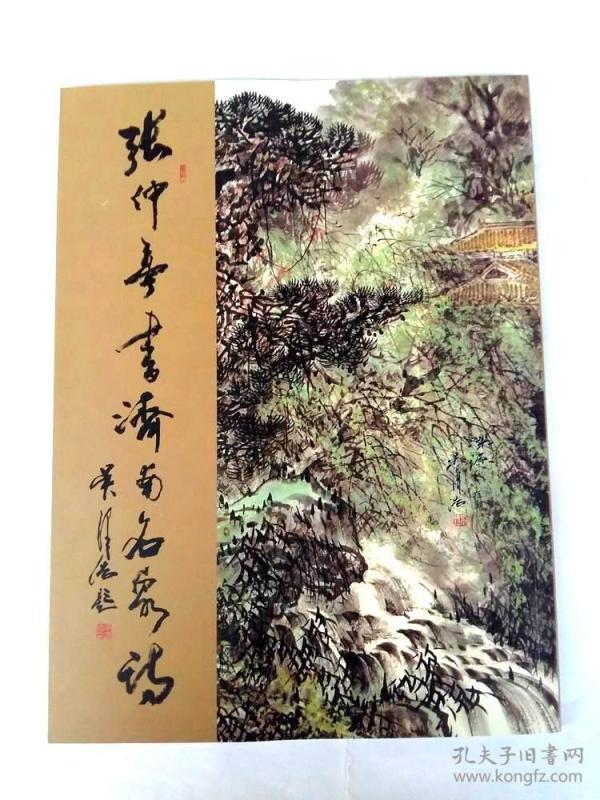 張仲亭書濟南名泉詩
吴泽浩题
孔夫子旧书网
www.kongfz.com